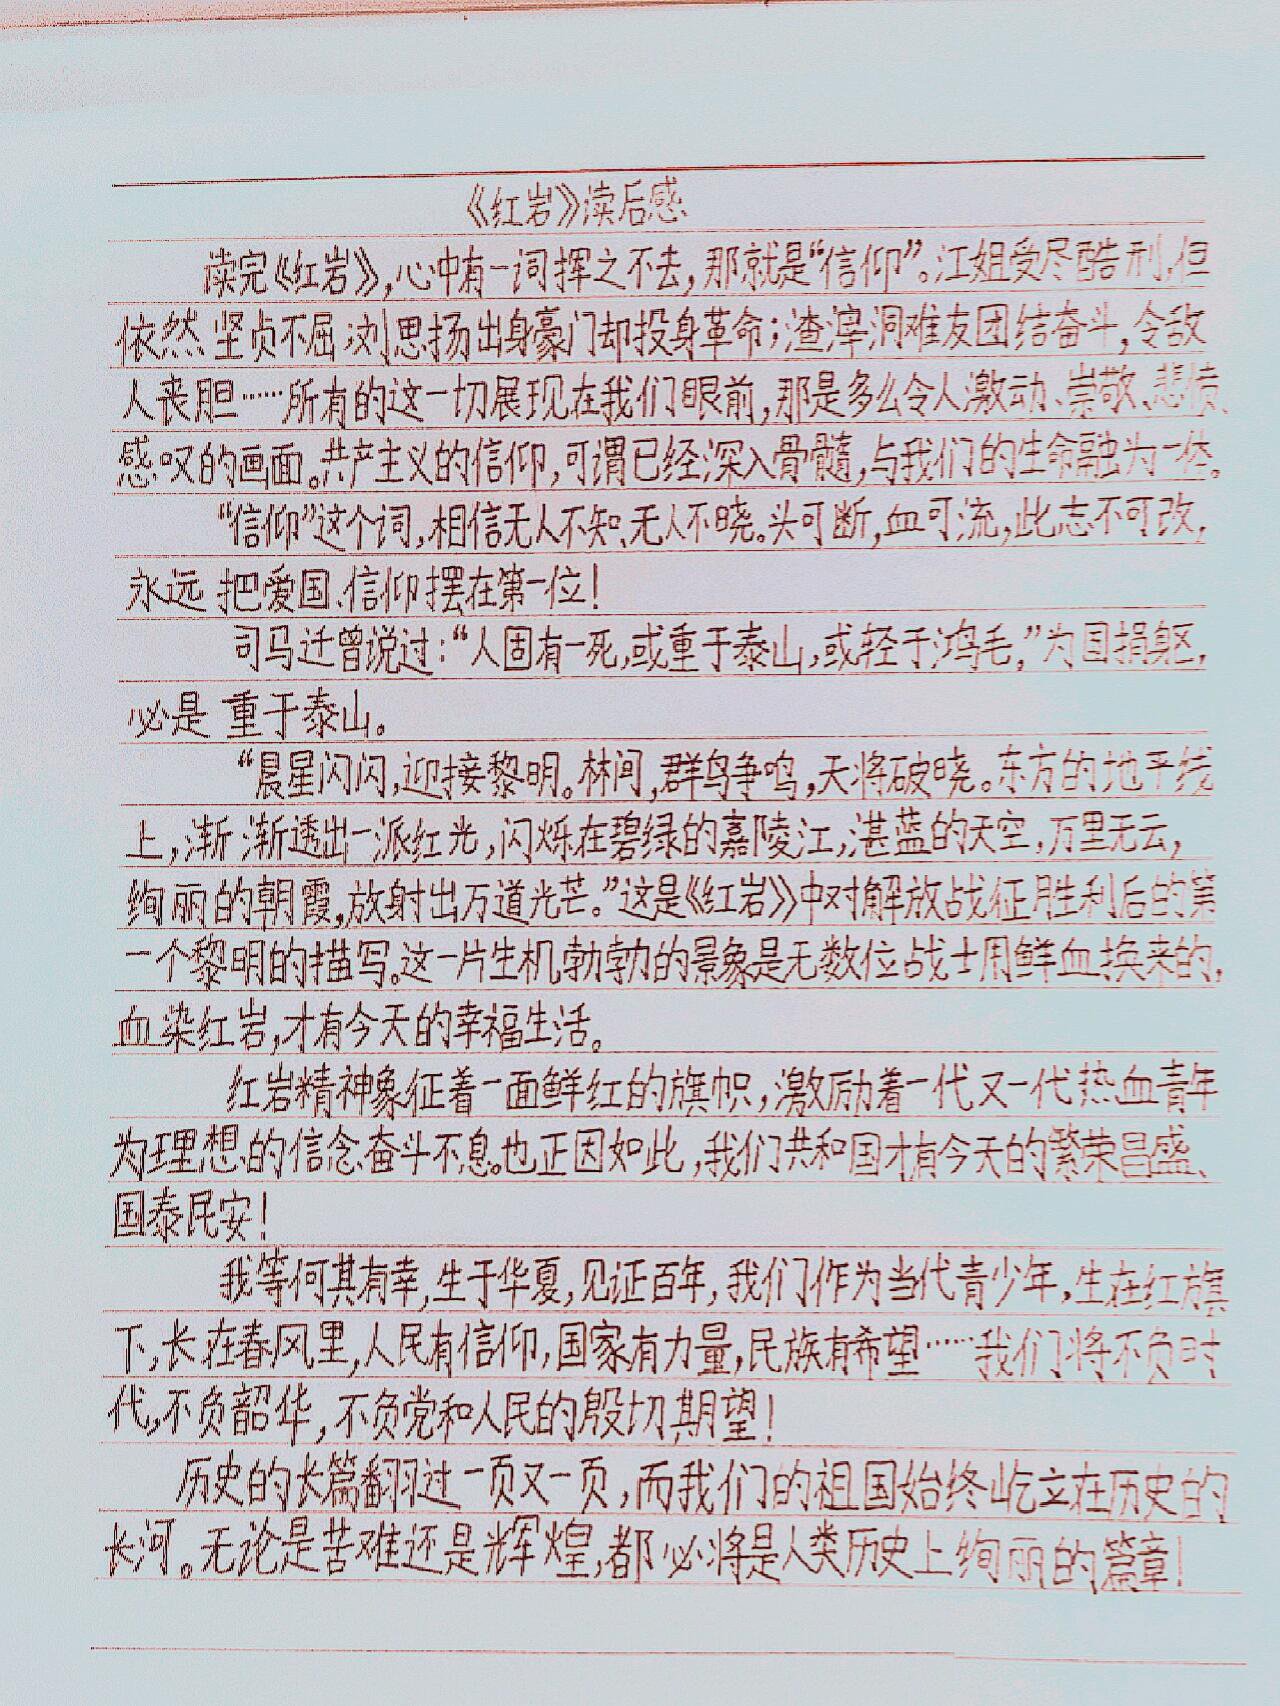 《红岩》读后感
读完《红岩》,心中有一词挥之不去,那就是“信仰”。江姐受尽酷刑,但
依然坚贞不屈;刘思扬出身豪门却投身革命;渣滓洞难友团结奋斗,令敌
人丧胆……所有的这一切展现在我们眼前,那是多么令人激动、崇敬、悲愤、
感叹的画面。共产主义的信仰,可谓已经深入骨髓,与我们的生命融为一体。
“信仰”这个词,相信无人不知、无人不晓。头可断,血可流,此志不可改,
永远把爱国、信仰摆在第一位!
司马迁曾说过:“人固有一死,或重于泰山,或轻于鸿毛,”为国捐躯,
必是重于泰山。
“晨星闪闪,迎接黎明。林间,群鸟争鸣,天将破晓。东方的地平线
上,渐渐透出一派红光,闪烁在碧绿的嘉陵江,湛蓝的天空,万里无云,
绚丽的朝霞,放射出万道光芒。”这是《红岩》中对解放战征胜利后的第
一个黎明的描写。这一片生机勃勃的景象是无数位战士用鲜血换来的,
血染红岩,才有今天的幸福生活。
红岩精神象征着一面鲜红的旗帜,激励着一代又一代热血青年
为理想的信念奋斗不息。也正因如此,我们共和国才有今天的繁荣昌盛、
国泰民安!
我等何其有幸,生于华夏,见证百年,我们作为当代青少年,生在红旗
下,长在春风里,人民有信仰,国家有力量,民族有希望……我们将不负时
代,不负韶华,不负党和人民的殷切期望!
历史的长篇翻过一页又一页,而我们的祖国始终屹立在历史的
长河。无论是苦难还是辉煌,都必将是人类历史上绚丽的篇章!